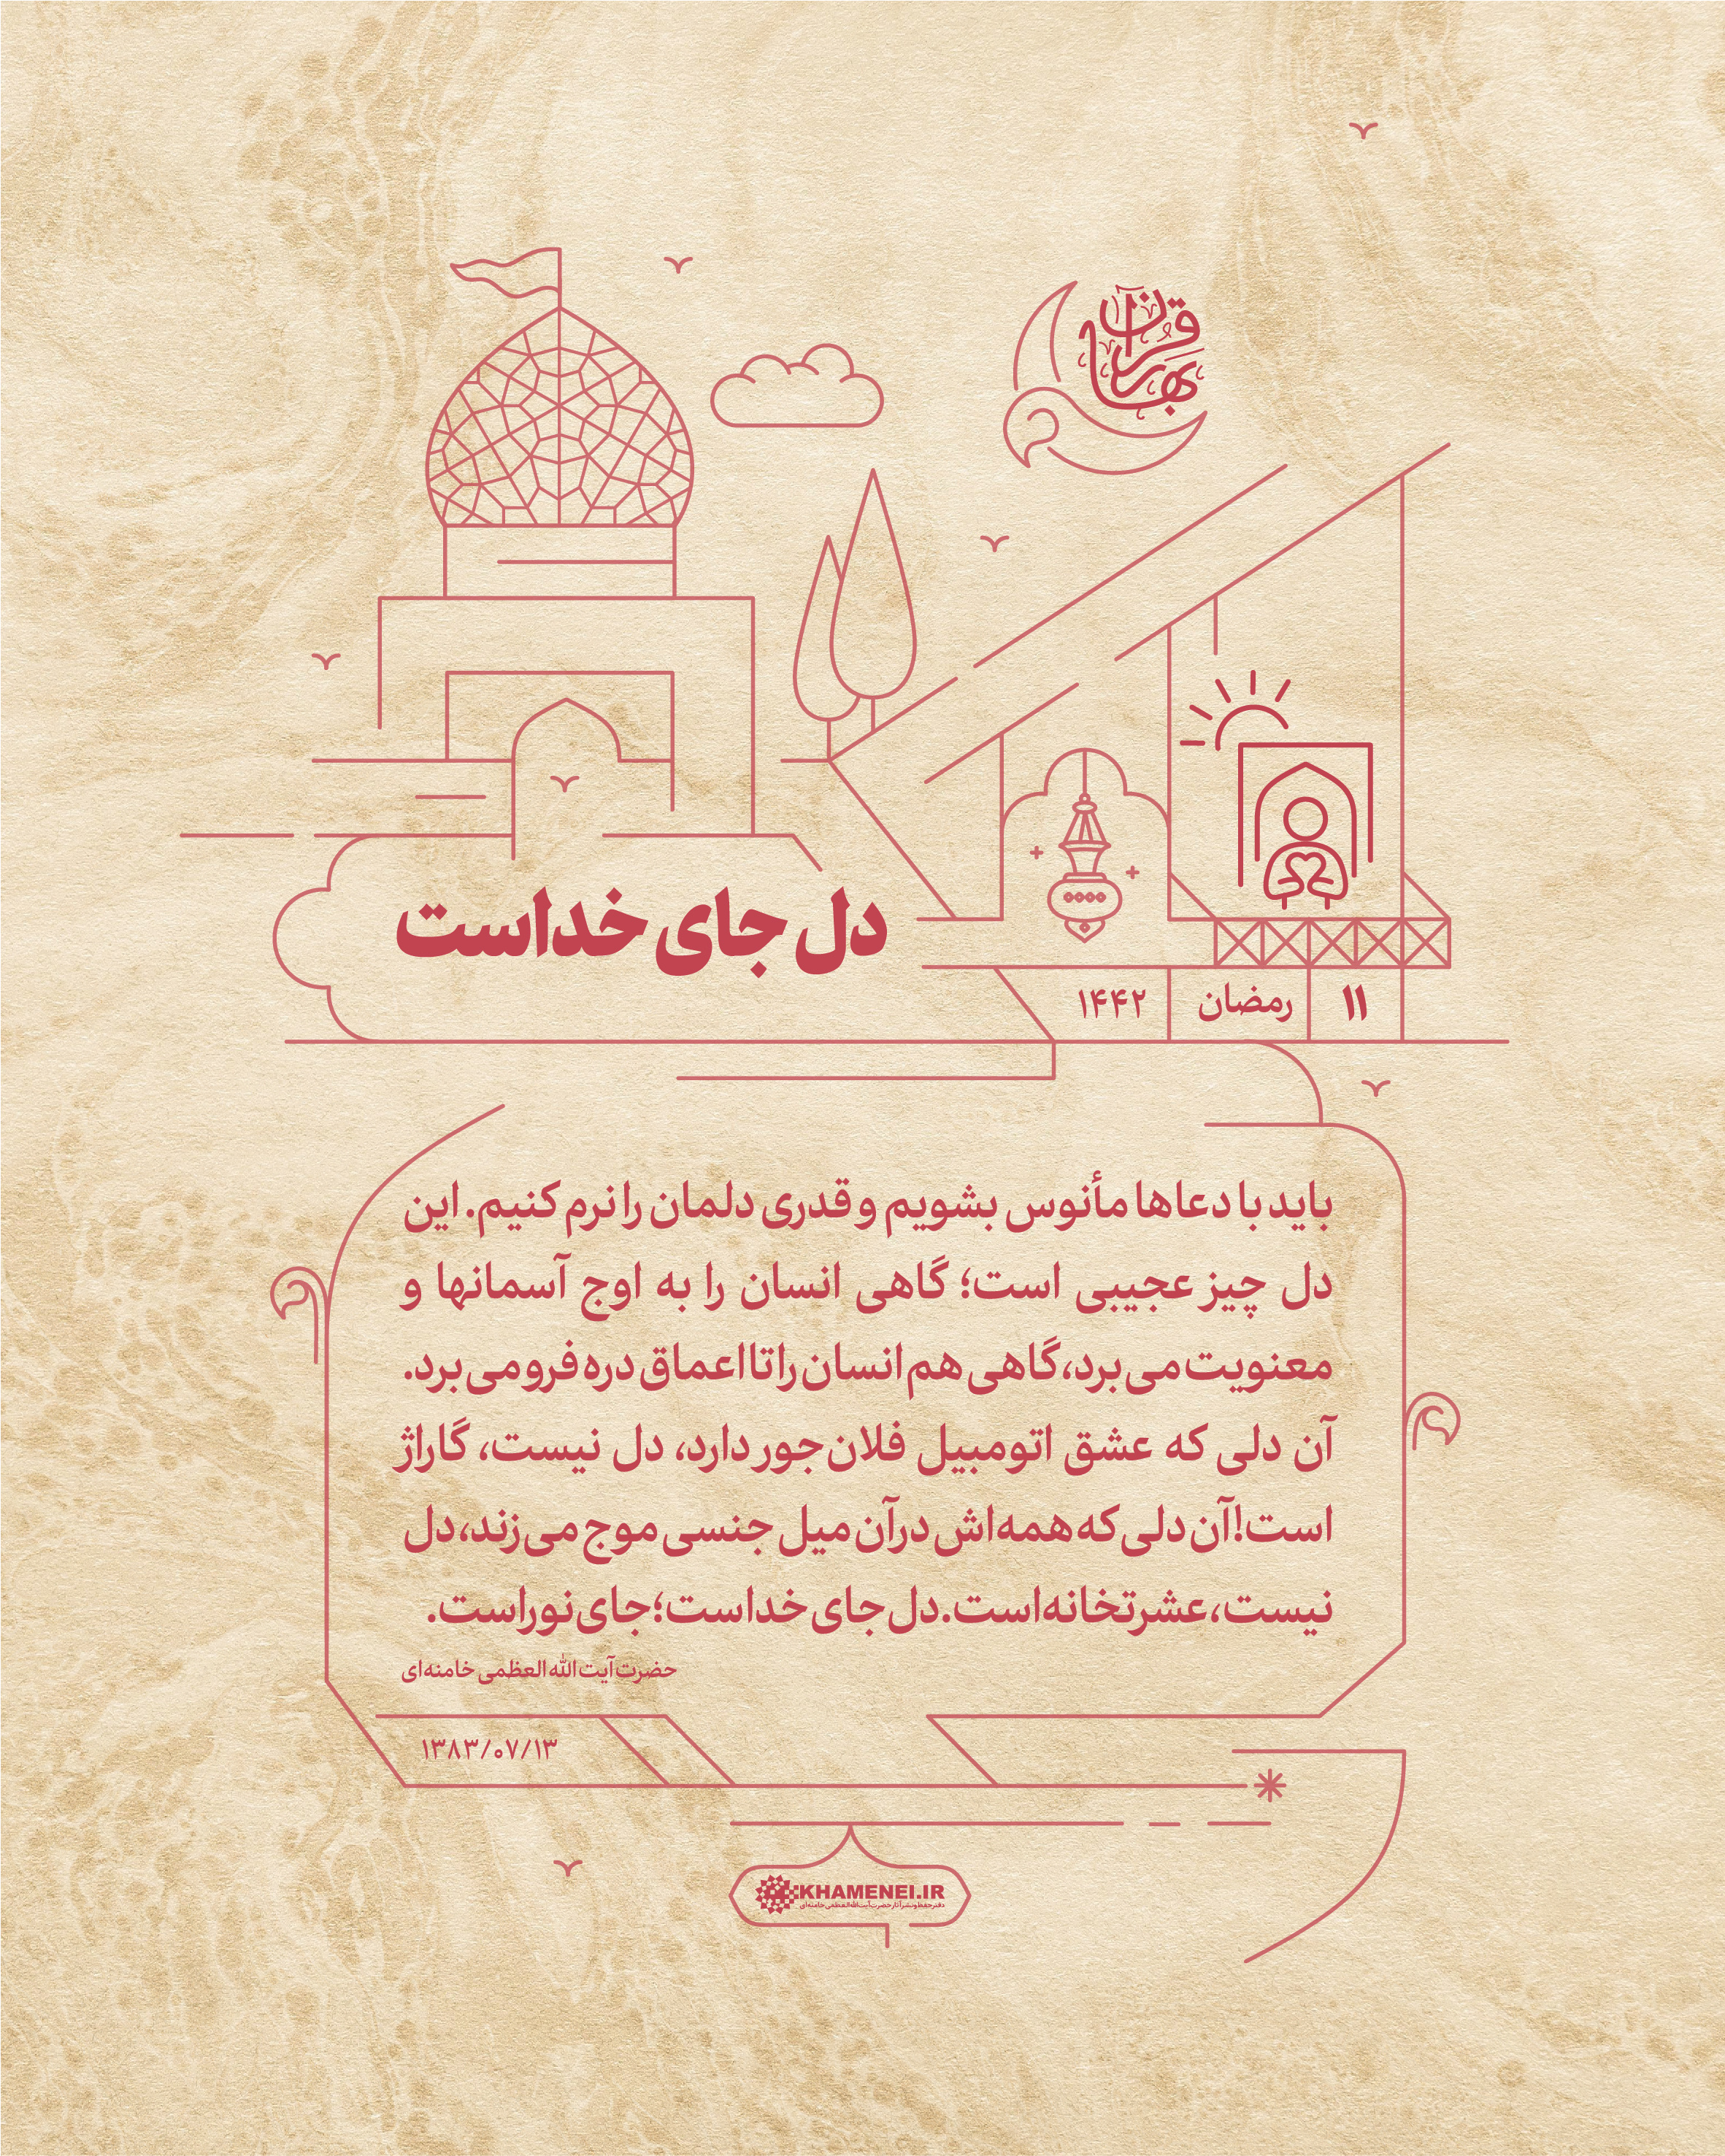 بهار قرآن
دل جای خداست
۱۱ رمضان ۱۴۴۲
باید با دعاها مأنوس بشویم و قدری دلمان را نرم کنیم. این
دل چیز عجیبی است؛ گاهی انسان را به اوج آسمانها و
معنویت می‌برد، گاهی هم انسان را تا اعماق دره فرو می‌برد.
آن دلی که عشق اتومبیل فلان‌جور دارد، دل نیست، گاراژ
است! آن دلی که همه‌اش در آن میل جنسی موج می‌زند، دل
نیست، عشرتخانه است. دل جای خداست؛ جای نور است.
حضرت آیت‌الله العظمی خامنه‌ای
۱۳۸۳/۰۷/۱۳
KHAMENEI.IR
دفتر حفظ و نشر آثار حضرت آیت‌الله العظمی خامنه‌ای